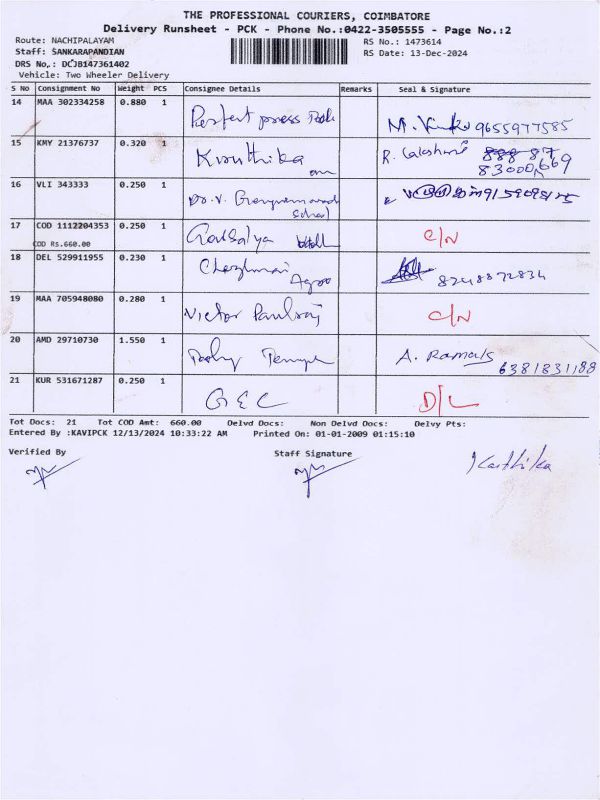 THE PROFESSIONAL COURIERS, COIMBATORE
Delivery Runsheet - PCK - Phone No.:0422-3505555 - Page No.:2
Route: NACHIPALAYAM RS No.: 1473614
Staff: SANKARAPANDIAN RS Date: 13-Dec-2024
DRS No.: DCJB147361402
Vehicle: Two Wheeler Delivery
S No Consignment No Weight PCS Consignee Details Remarks Seal & Signature
14 MAA 302334258 0.880 1 Perfect press Tools 9655977585
15 KMY 21376737 0.320 1 Kiruthika R.
16 VLI 343333 0.250 1 Dr. V. School
17 COD 1112204353 0.250 1 C/N
COD Rs.660.00
18 DEL 529911955 0.230 1 Chezhian Agroo 8248872834
19 MAA 705948080 0.280 1 Victor Paulraj C/N
20 AMD 29710730 1.550 1 A. 6381831188
21 KUR 531671287 0.250 1 GEC D/L
Tot Docs: 21 Tot COD Amt: 660.00 Delvd Docs: Non Delvd Docs: Delvy Pts:
Entered By :KAVIPCK 12/13/2024 10:33:22 AM Printed On: 01-01-2009 01:15:10
Verified By Staff Signature Karthika